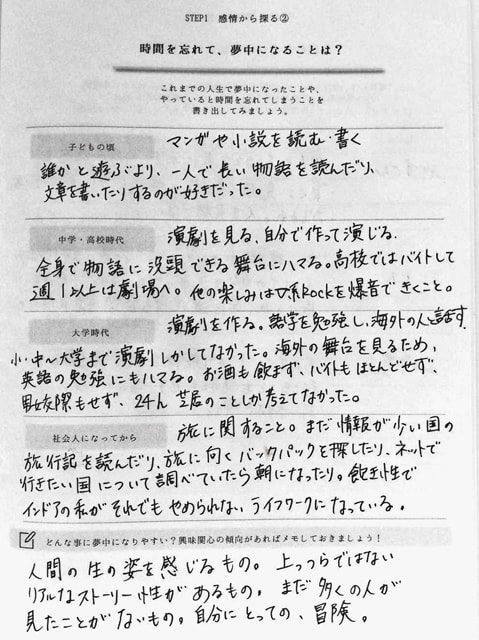 STEP1 感情から探る②
時間を忘れて、夢中になることは？
これまでの人生で夢中になったことや、
やっていると時間を忘れてしまうことを
書き出してみましょう。
子どもの頃 マンガや小説を読む・書く
誰かと遊ぶより、一人で長い物語を読んだり、
文章を書いたりするのが好きだった。
中学・高校時代 演劇を見る、自分で作って演じる。
全身で物語に没頭できる舞台にハマる。高校ではバイトして
週1以上は劇場へ。他の楽しみはV系Rockを爆音できくこと。
大学時代 演劇を作る。語学を勉強し、海外の人と話す
小・中〜大学まで演劇しかしてなかった。海外の舞台を見るため、
英語の勉強にもハマる。お酒も飲まず、バイトもほとんどせず、
男女交際もせず、24h 芝居のことしか考えてなかった。
社会人になってから 旅に関すること。まだ情報が少い国の
旅行記を読んだり、旅に向くバックパックを探したり、ネットで
行きたい国について調べていたら朝になったり。飽き性で
インドアの私がそれでもやめられない、ライフワークになっている。
どんな事に夢中になりやすい？興味関心の傾向があればメモしておきましょう！
人間の生の姿を感じるもの。上っつらではない
リアルなストーリー性があるもの。まだ多くの人が
見たことがないもの。自分にとっての、冒険。